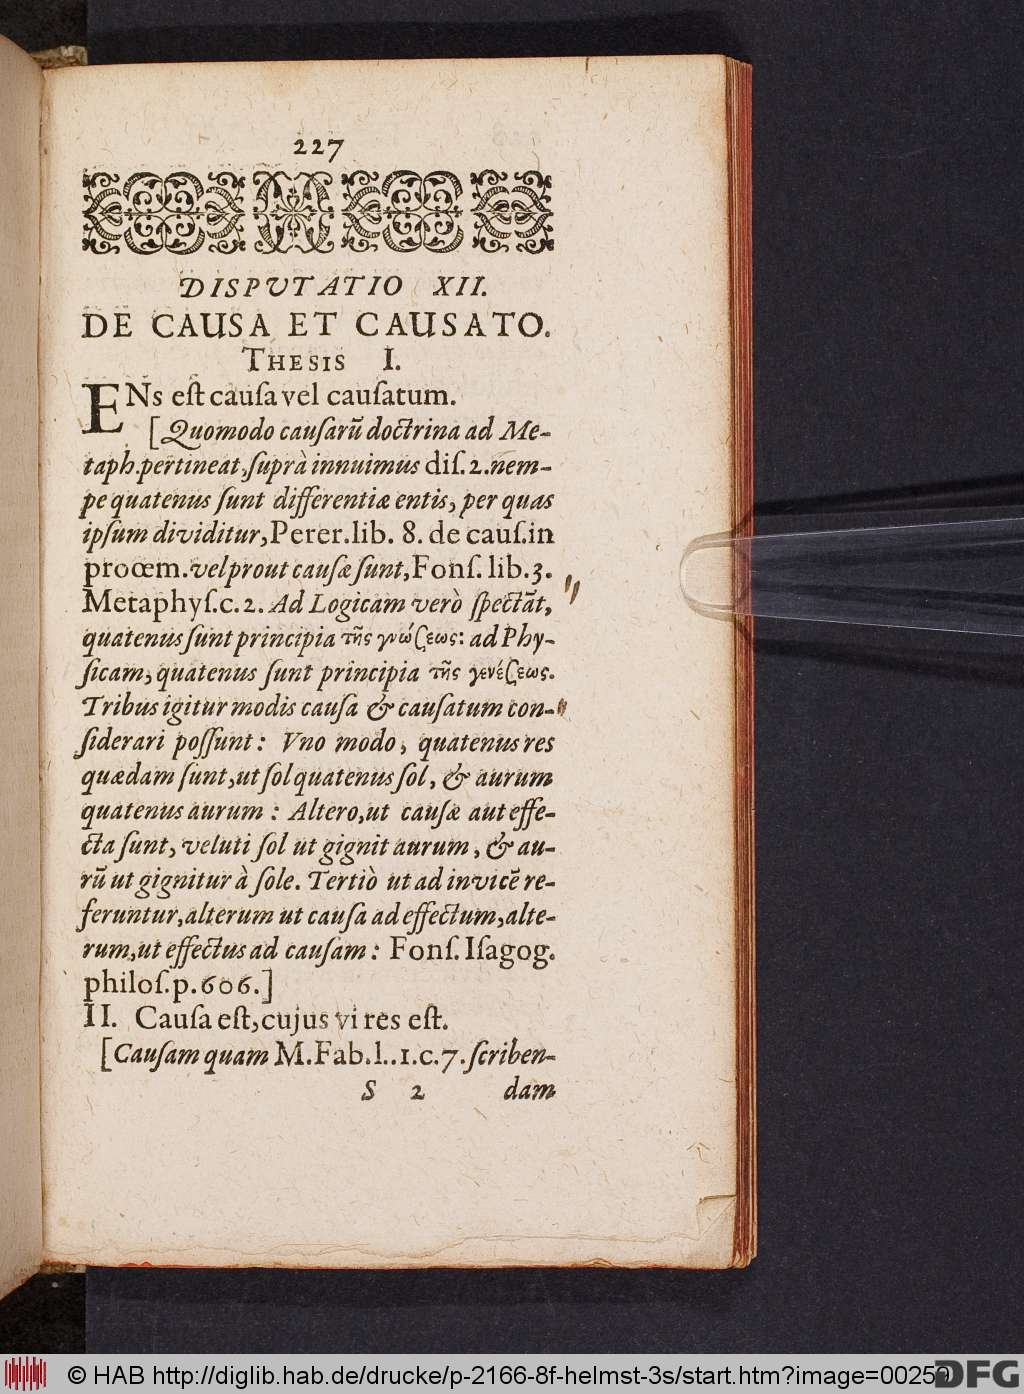 227
DISPVTATIO XII.
DE CAUSA ET CAUSATO.
THESIS I.
ENs eſt cauſa vel cauſatum.
[Quomodo cauſarū doctrina ad Me-
taph. pertineat, ſuprà innuimus diſ. 2. nem-
pe quatenus ſunt differentiæ entis, per quas
ipſum dividitur, Perer. lib. 8. de cauſ. in
proœm. vel prout cauſæ ſunt, Fonſ. lib. 3.
Metaphyſ. c. 2. Ad Logicam verò ſpectāt,
quatenus ſunt principia τῆς γνώσεως: ad Phy-
ſicam, quatenus ſunt principia τῆς γενέσεως.
Tribus igitur modis cauſa & cauſatum con-
ſiderari poſſunt: Vno modo, quatenus res
quædam ſunt, ut ſol quatenus ſol, & aurum
quatenus aurum: Altero, ut cauſæ aut effe-
cta ſunt, veluti ſol ut gignit aurum, & au-
rū ut gignitur à ſole. Tertiò ut ad invicē re-
feruntur, alterum ut cauſa ad effectum, alte-
rum, ut effectus ad cauſam: Fonſ. Iſagog.
philoſ. p. 606.]
II. Cauſa eſt, cujus vi res eſt.
[Cauſam quam M. Fab. l.. 1. c. 7. ſcriben-
S 2 dam
© HAB http://diglib.hab.de/drucke/p-2166-8f-helmst-3s/start.htm?image=00259
DFG